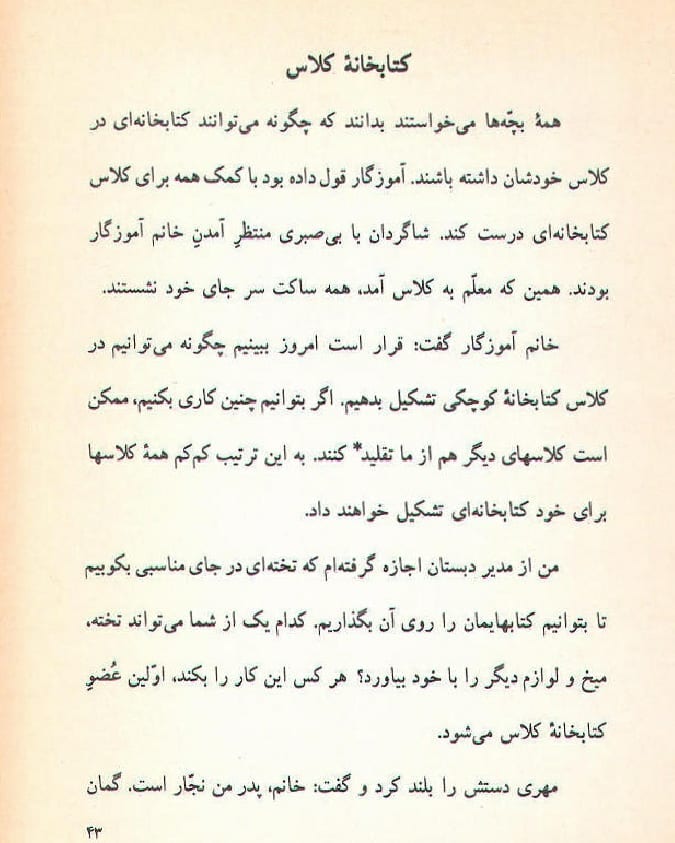 کتابخانهٔ کلاس
همهٔ بچّه‌ها می‌خواستند بدانند که چگونه می‌توانند کتابخانه‌ای در
کلاس خودشان داشته باشند. آموزگار قول داده بود با کمک همه برای کلاس
کتابخانه‌ای درست کند. شاگردان با بی‌صبری منتظرِ آمدنِ خانم آموزگار
بودند. همین که معلّم به کلاس آمد، همه ساکت سر جای خود نشستند.
خانم آموزگار گفت: قرار است امروز ببینیم چگونه می‌توانیم در
کلاس کتابخانهٔ کوچکی تشکیل بدهیم. اگر بتوانیم چنین کاری بکنیم، ممکن
است کلاسهای دیگر هم از ما تقلید* کنند. به این ترتیب کم‌کم همهٔ کلاسها
برای خود کتابخانه‌ای تشکیل خواهند داد.
من از مدیر دبستان اجازه گرفته‌ام که تخته‌ای در جای مناسبی بکوبیم
تا بتوانیم کتابهایمان را روی آن بگذاریم. کدام یک از شما می‌تواند تخته،
میخ و لوازم دیگر را با خود بیاورد؟ هر کس این کار را بکند، اوّلین عُضوِ
کتابخانهٔ کلاس می‌شود.
مهری دستش را بلند کرد و گفت: خانم، پدر من نجّار است. گمان
۴۳